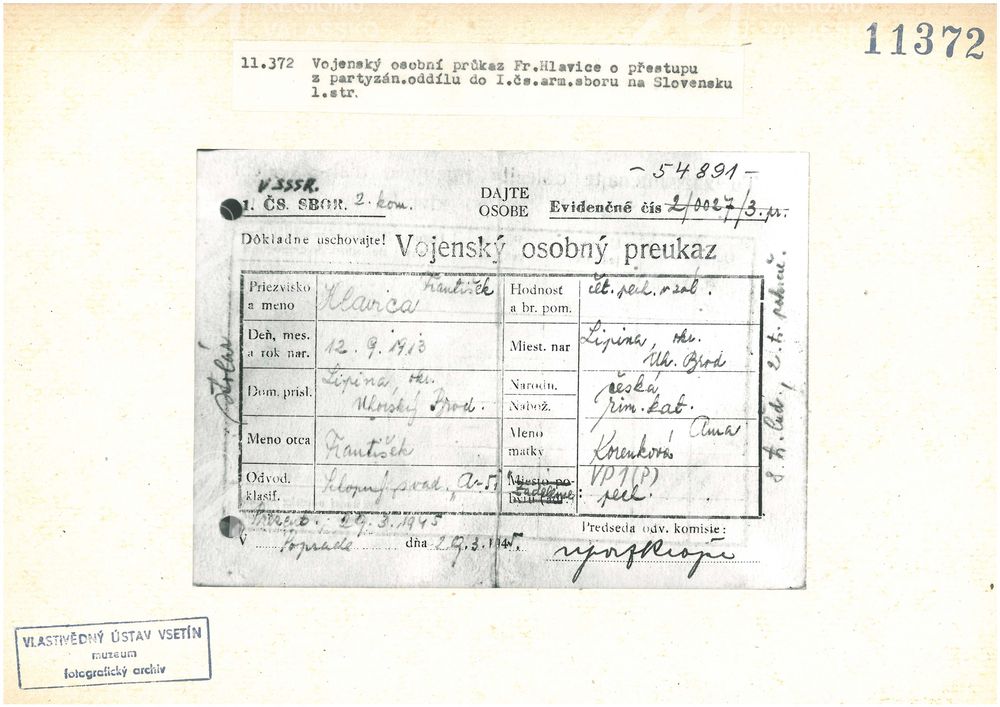 11372
11.372 Vojenský osobní průkaz Fr.Hlavice o přestupu
z partyzán.oddílu do I.čs.arm.sboru na Slovensku
1.str.
- 54891 -
V SSSR.
1. ČS. SBOR. 2. kom.
DAJTE
OSOBE
Evidenčné čís 2/0027/3. pr.
Dôkladne uschovajte! Vojenský osobný preukaz
Priezvisko
a meno
František
Hlavica
Hodnost
a br. pom.
čet. pech. v zál.
Deň, mes.
a rok nar.
12. 9. 1913
Miest. nar
Lipina, okr.
Uh. Brod
Dom. prísl.
Lipina, okr.
Uherský Brod.
Narodn.
česká
Nabož.
řím. kat.
Meno otca
František
Meno
matky
Anna
Korenková
Odvod.
klasif.
"A"
Miesto po-
bytu
VP 1 (P)
pech.
Prezent. 29. 3. 1945
V Poprade dňa 29. 3. 1945.
Predseda odv. komisie:
stolár
8 tr. ľud., 2 tr. pokrač.
VLASTIVĚDNÝ ÚSTAV VSETÍN
muzeum
fotografický archiv